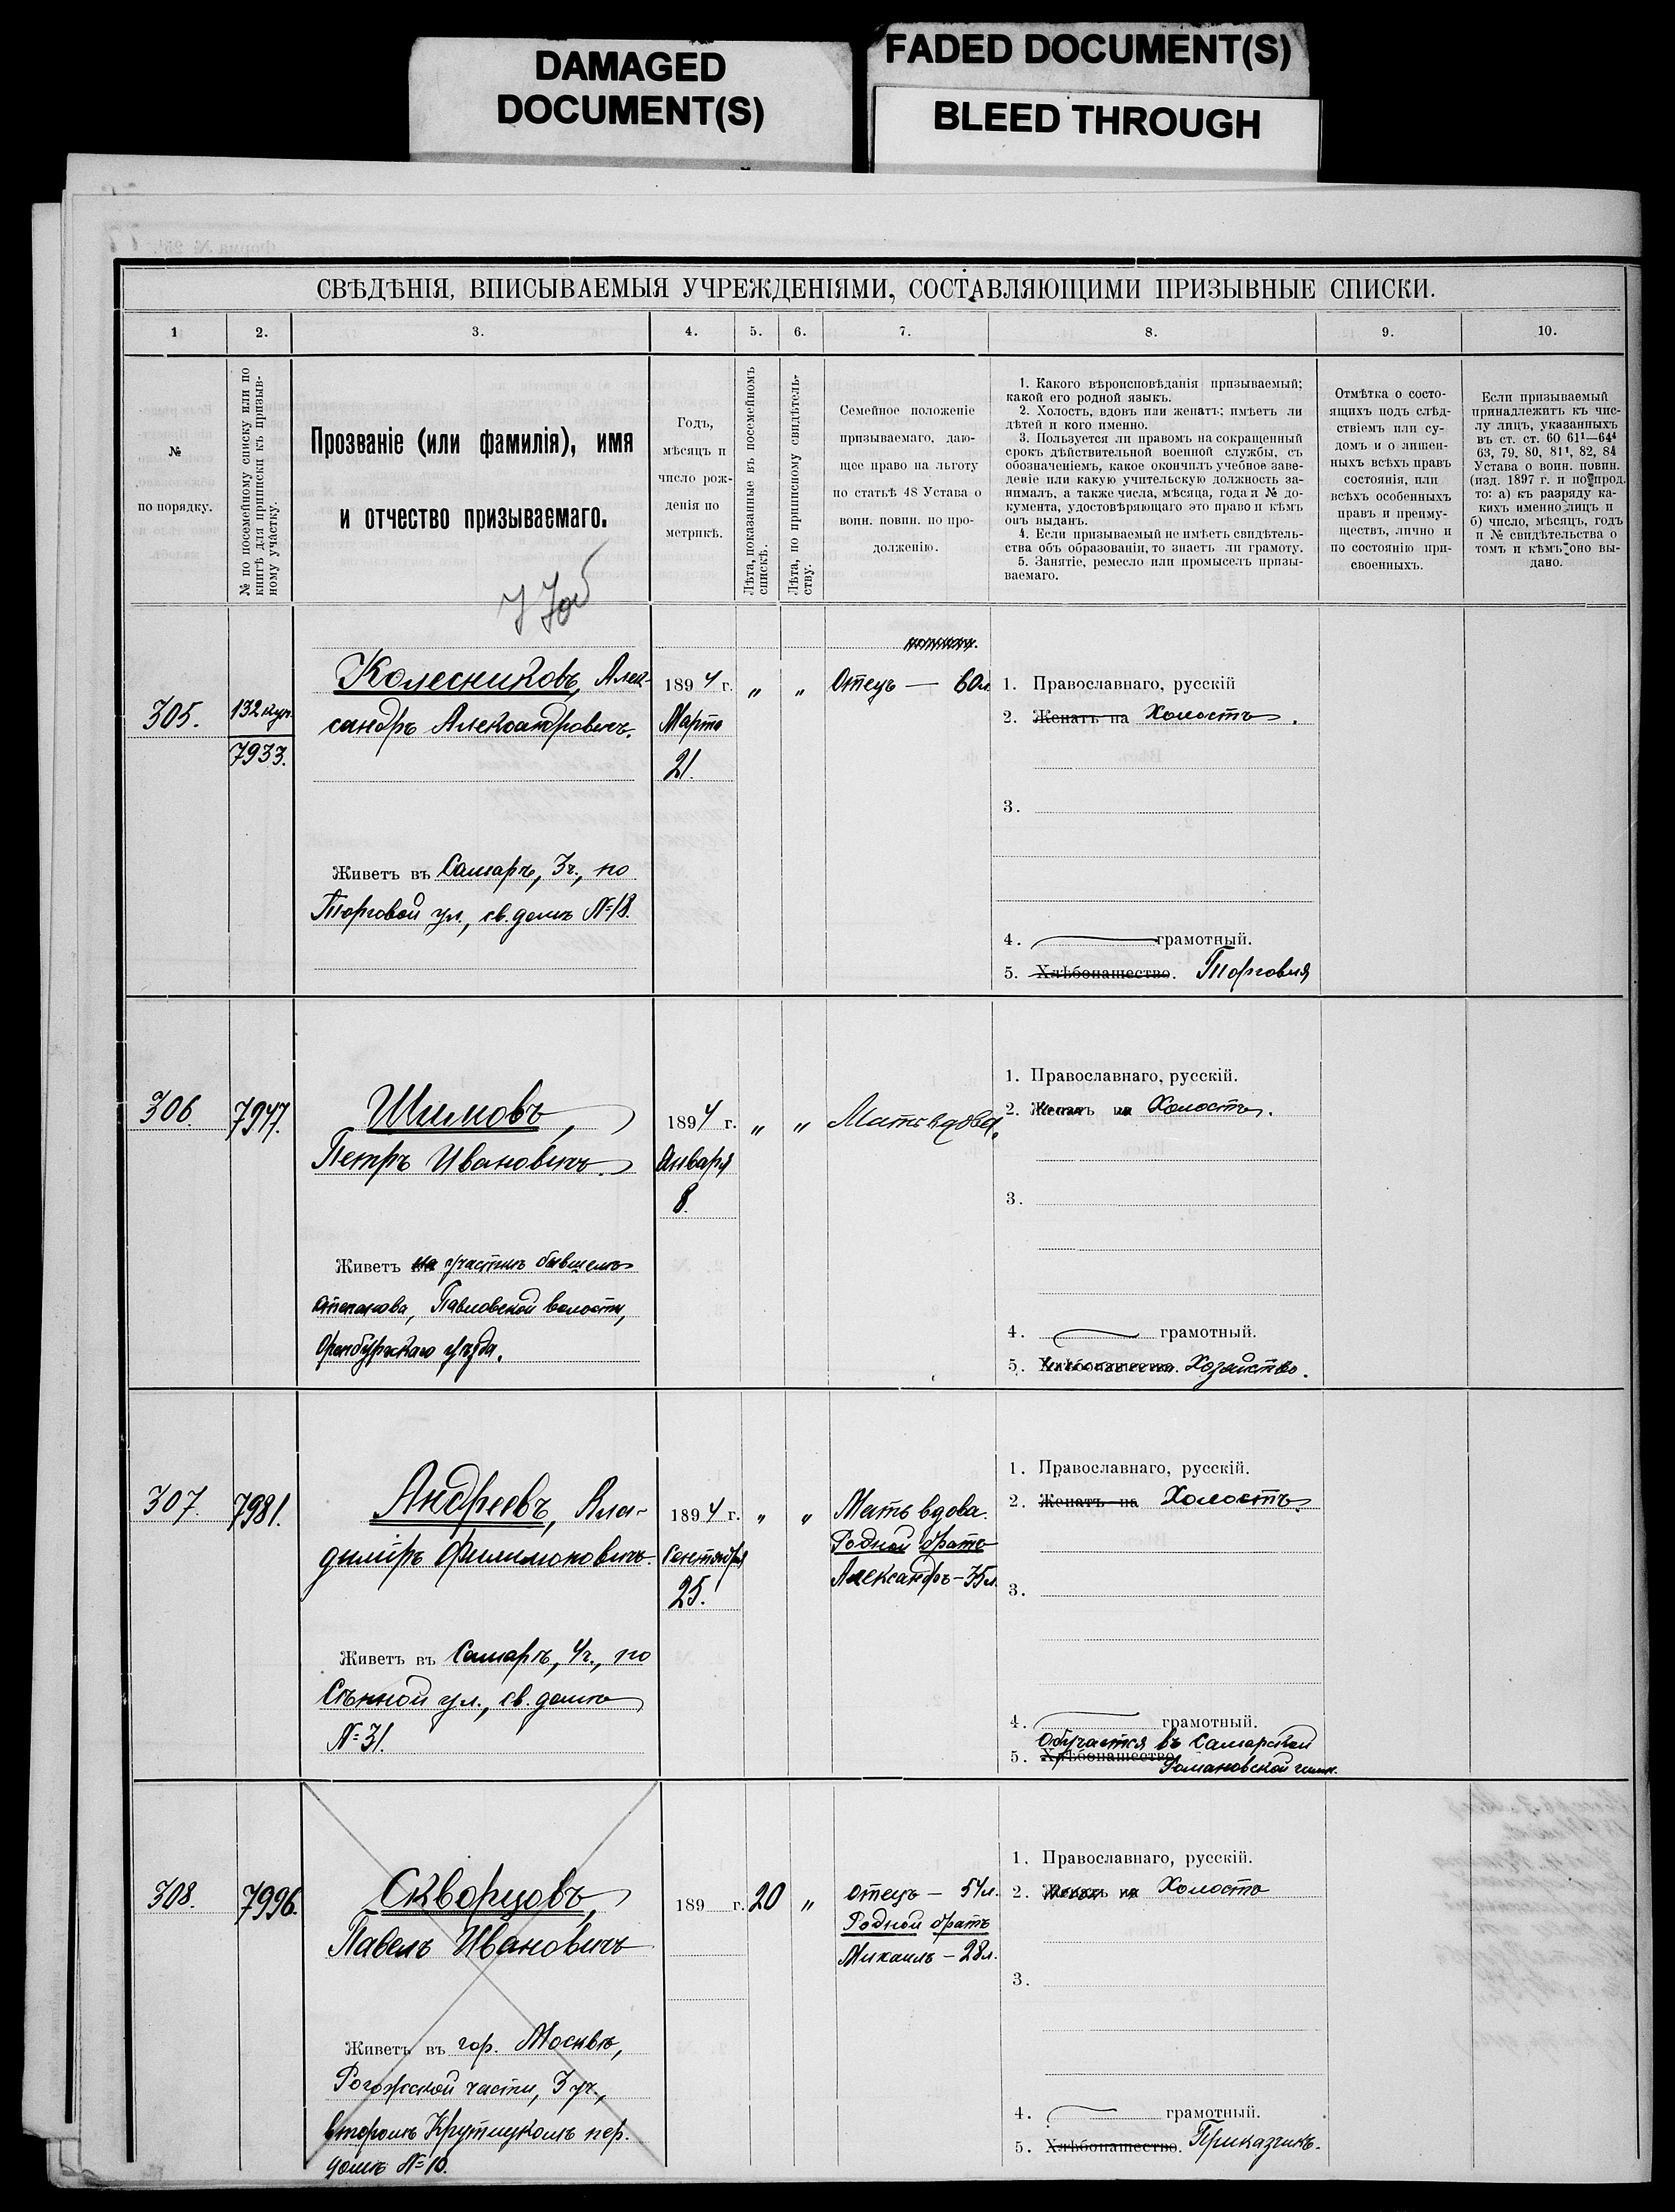 DAMAGED
DOCUMENT(S)
FADED DOCUMENT(S)
BLEED THROUGH
СВѢДѢНІЯ, ВПИСЫВАЕМЫЯ УЧРЕЖДЕНІЯМИ, СОСТАВЛЯЮЩИМИ ПРИЗЫВНЫЕ СПИСКИ.
1 2. 3. 4. 5. 6. 7. 8. 9. 10.
№
по порядку.
№ по посемейному списку или по
книгѣ для приписки къ призыв-
ному участку.
Прозваніе (или фамилія), имя
и отчество призываемаго.
Годъ,
мѣсяцъ и
число рож-
денія по
метрикѣ.
Лѣта, показанные въ посемейномъ
спискѣ.
Лѣта, по приписному свидѣтель-
ству.
Семейное положеніе
призываемаго, даю-
щее право на льготу
по статьѣ 48 Устава о
воин. повин. по про-
долженію.
1. Какого вѣроисповѣданія призываемый;
какой его родной языкъ.
2. Холостъ, вдовъ или женатъ; имѣетъ ли
дѣтей и кого именно.
3. Пользуется ли правомъ на сокращенный
срокъ дѣйствительной военной службы, съ
обозначеніемъ, какое окончилъ учебное заве-
деніе или какую учительскую должность за-
нималъ, а также числа, мѣсяца, года и № до-
кумента, удостовѣряющаго это право и кѣмъ
онъ выданъ.
4. Если призываемый не имѣетъ свидѣтель-
ства объ образованіи, то знаетъ ли грамоту.
5. Занятіе, ремесло или промыселъ призы-
ваемаго.
Отмѣтка о состо-
ящихъ подъ слѣд-
ствіемъ или су-
домъ и о лишен-
ныхъ всѣхъ правъ
состоянія, или
всѣхъ особенныхъ
правъ и преиму-
ществъ, лично и
по состоянію при-
своенныхъ.
Если призываемый
принадлежитъ къ чис-
лу лицъ, указанныхъ
въ ст. ст. 60 61¹—64⁴
63, 79, 80, 81¹, 82, 84
Устава о воин. повин.
(изд. 1897 г. и по прод.
то: а) къ разряду ка-
кихъ именно лицъ и
б) число, мѣсяцъ, годъ
и № свидѣтельства о
томъ и кѣмъ оно вы-
дано.
305.
132 куп.
7933.
Колесниковъ, Алек-
сандръ Александровичъ.
Живетъ въ Самарѣ, 3ч., по
Торговой ул., св. домъ №18.
1894 г.
Марта
21.
„ „
Отецъ — 60л.
1. Православнаго, русскій
2. Женатъ на Холостъ.
3.
4. грамотный.
5. Хлѣбопашество. Торговля
306.
7947.
Шимовъ,
Петръ Ивановичъ.
Живетъ на участкѣ бывшемъ
Павловской волости,
Оренбургскаго уѣзда.
1894 г.
Января
8.
„ „
Мать вдова.
1. Православнаго, русскій.
2. Женатъ на Холостъ.
3.
4. грамотный.
5. Хлѣбопашество. Хозяйство.
307.
7981.
Андреевъ, Вла-
диміръ Филимоновичъ.
Живетъ въ Самарѣ, 4ч., по
Сѣнной ул., св. домъ
№ 31.
1894 г.
Сентября
25.
„ „
Мать вдова.
Родной братъ
Александръ - 35 л.
1. Православнаго, русскій.
2. Женатъ на Холостъ.
3.
4. грамотный.
Обучается въ Самарской
5. Хлѣбопашество
Романовской гимн.
308.
7996.
Скворцовъ,
Павелъ Ивановичъ
Живетъ въ гор. Москвѣ,
Рогожской части, 3 уч.,
второмъ Крутицкомъ пер.
домъ № 10.
189 г.
20 „
Отецъ - 54л.
Родной братъ
Михаилъ - 28л.
1. Православнаго, русскій.
2. Женатъ на Холостъ
3.
4. грамотный.
5. Хлѣбопашество. Приказчикъ.